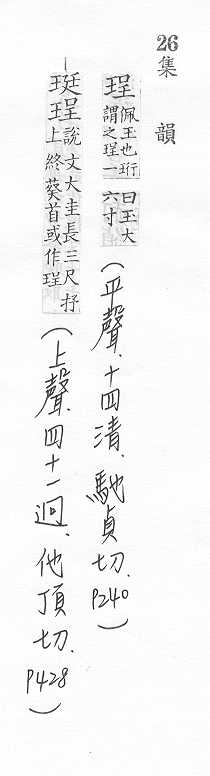 26 集韻
珵 佩玉也珩謂之珵一曰玉大六寸(平聲、十四清、馳貞切、P240)
珽珵 說文大圭長三尺抒上終葵首或作珵(上聲、四十一迥、他頂切、P428)